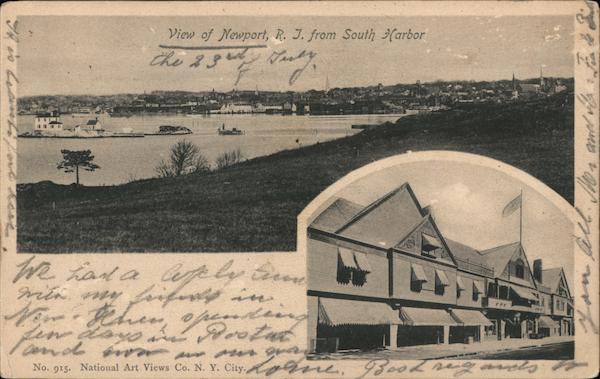 View of Newport, R. I. from South Harbor
the 23rd of July
We had a lovely time
with my friends in
New spending
few days in Boston
and now in our way
home. Best regards
No. 915. National Art Views Co. N. Y. City.
to
Mr and Mrs
you all